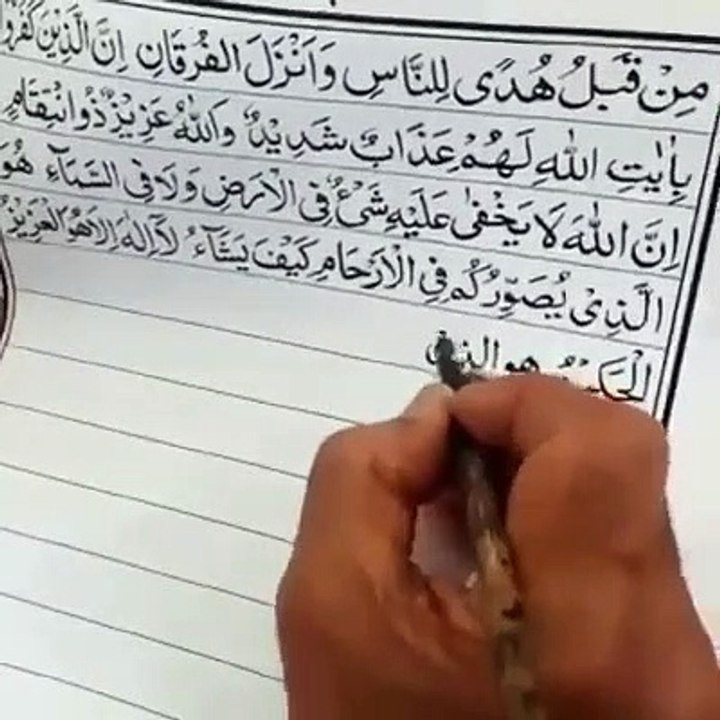 مِنْ قَبْلُ هُدًى لِلنَّاسِ وَاَنْزَلَ الفُرْقَانِ اِنَّ الَّذِيْنَ كَفَرُوْا
بِاٰيٰتِ اللّٰهِ لَهُمْ عَذَابٌ شَدِيْدٌ وَاللّٰهُ عَزِيْزٌ ذُوانْتِقَامٍ
اِنَّ اللّٰهَ لَا يَخْفٰى عَلَيْهِ شَىْءٌ فِى الْاَرْضِ وَلَا فِى السَّمَآءِ هُوَ
الَّذِىْ يُصَوِّرُكُمْ فِى الْاَرْحَامِ كَيْفَ يَشَآءُ لَآ اِلٰهَ اِلَّا هُوَ الْعَزِيْزُ
الْحَكِيْمُ هو الذى